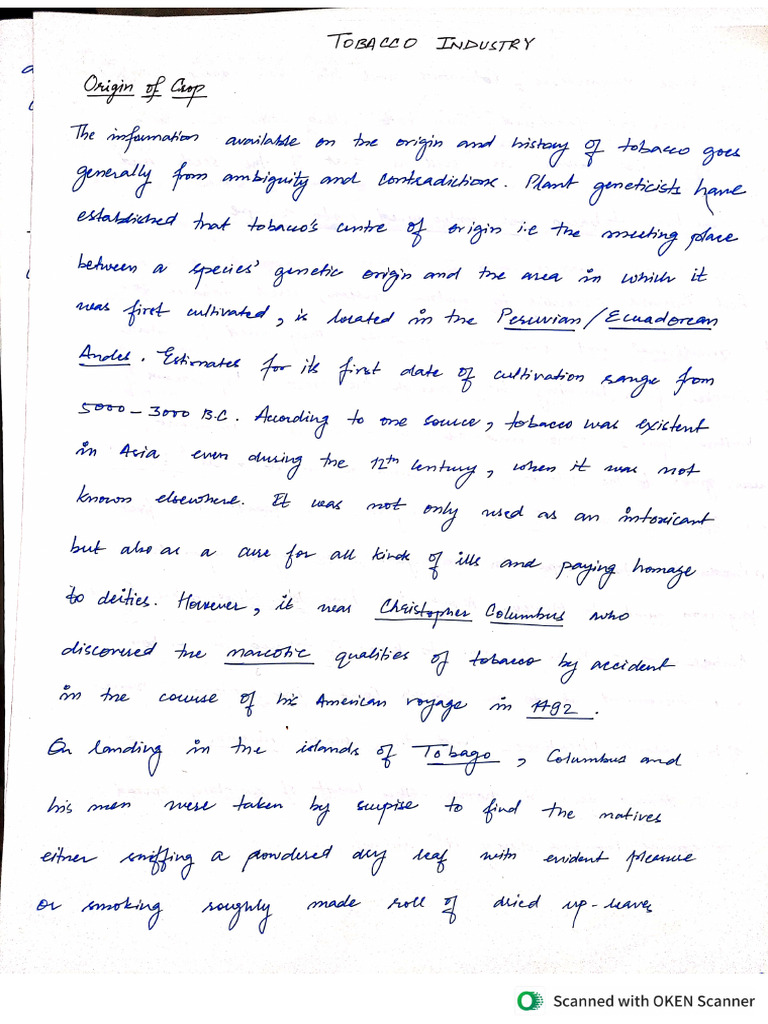 TOBACCO INDUSTRY
Origin of Crop
The information available on the origin and history of tobacco goes
generally from ambiguity and contradictions. Plant geneticists have
established that tobacco's centre of origin i.e the meeting place
between a species' genetic origin and the area in which it
was first cultivated, is located in the Peruvian / Ecuadorean
Andes. Estimates for its first date of cultivation range from
5000 - 3000 B.C. According to one source, tobacco was existent
in Asia even during the 12th century, when it was not
known elsewhere. It was not only used as an intoxicant
but also as a cure for all kinds of ills and paying homage
to deities. However, it was Christopher Columbus who
discovered the narcotic qualities of tobacco by accident
in the course of his American voyage in 1492.
On landing in the islands of Tobago, Columbus and
his men were taken by surpise to find the natives
either sniffing a powdered dry leaf with evident pleasure
or smoking roughly made roll of dried up-leaves
Scanned with OKEN Scanner